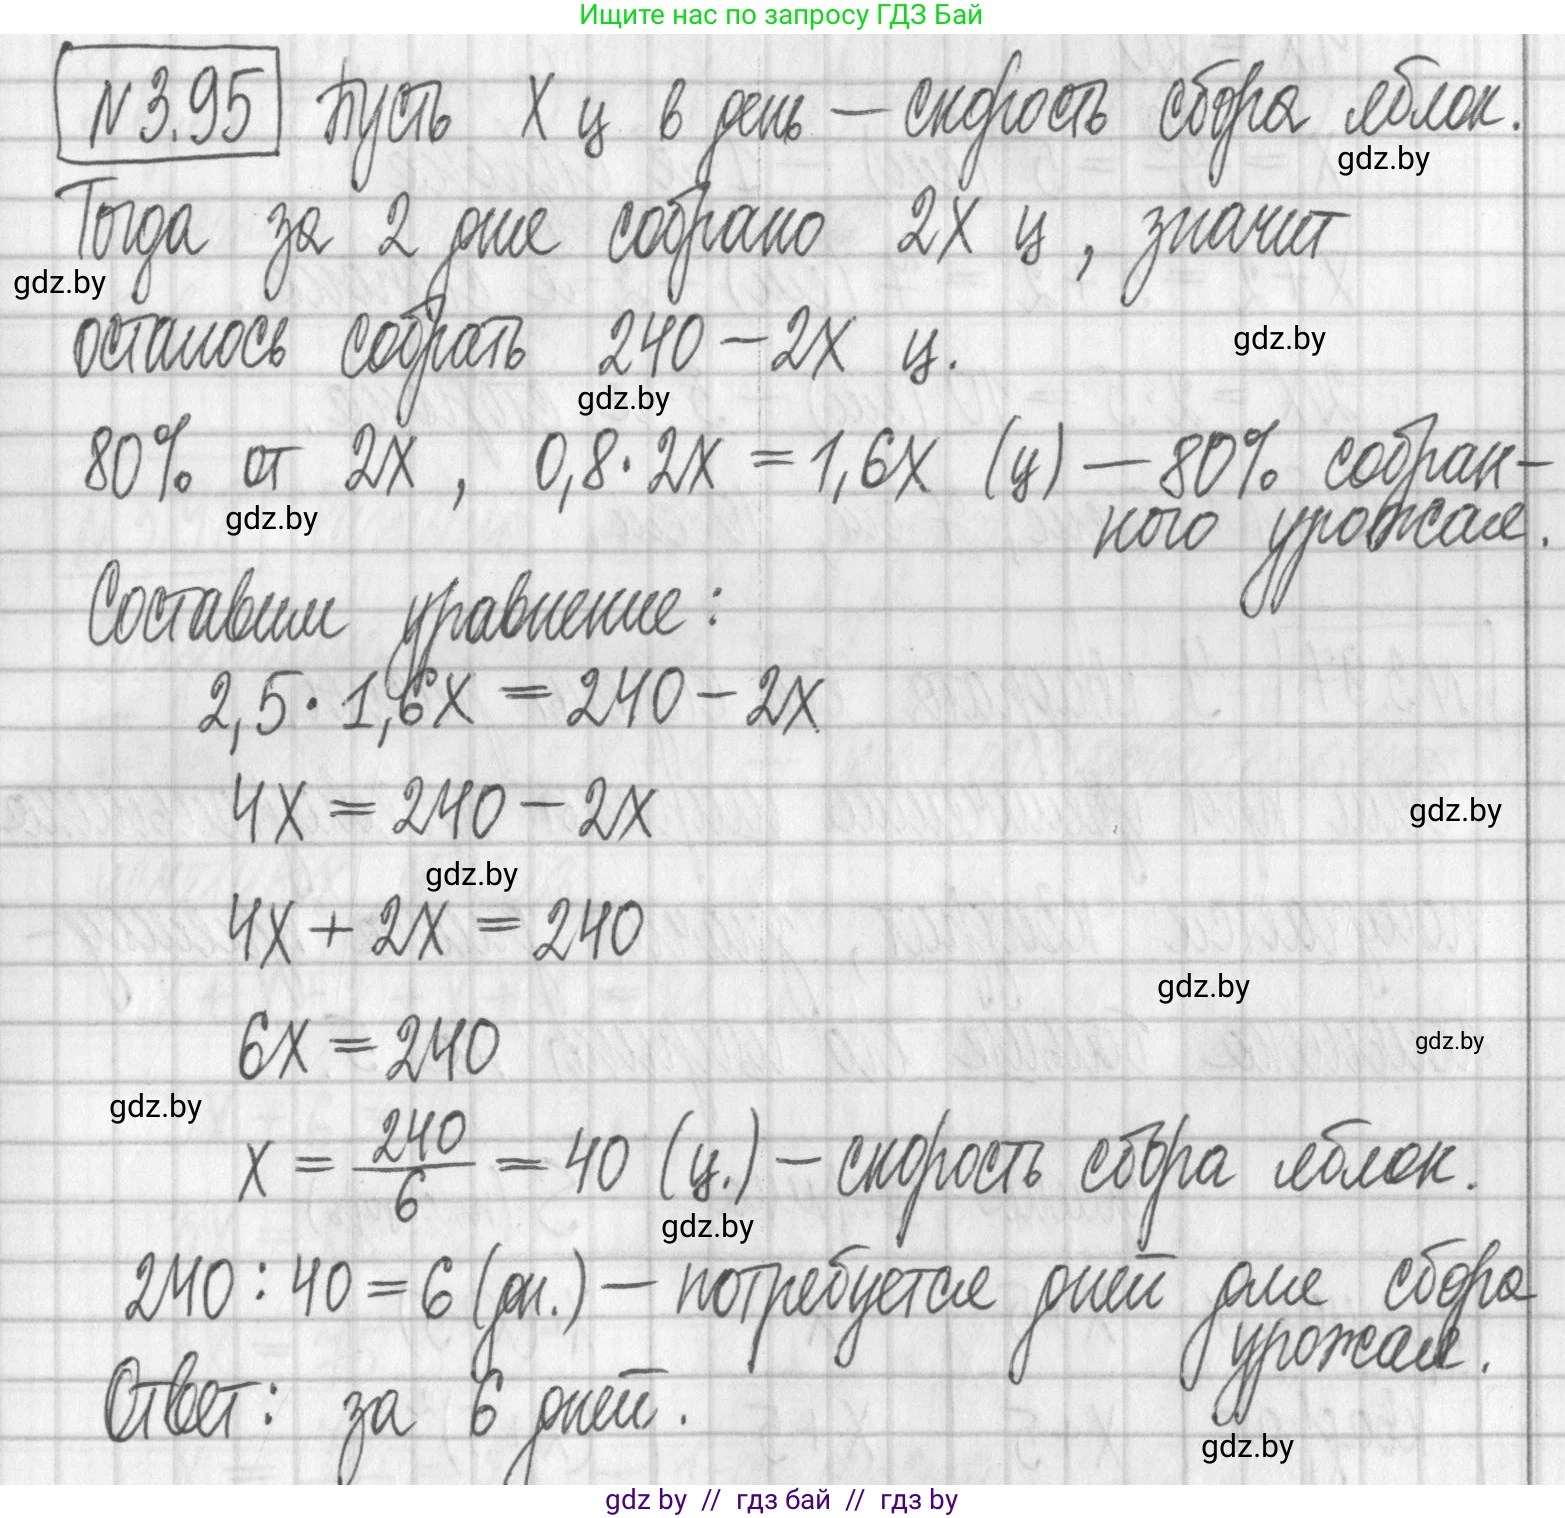 Ищите нас по запросу ГДЗ Бай
N 3.95 Пусть x ц в день – скорость сбора яблок.
gdz.by
Тогда за 2 дня собрано 2x ц, значит
gdz.by
осталось собрать 240 – 2x ц.
gdz.by
gdz.by
80% от 2x, 0,8·2x = 1,6x (ц) – 80% собран-
ного урожая.
gdz.by
Составим уравнение:
2,5·1,6x = 240 – 2x
4x = 240 – 2x
gdz.by
gdz.by
4x + 2x = 240
gdz.by
6x = 240
gdz.by
gdz.by
x = 240/6 = 40 (ц.) – скорость сбора яблок.
gdz.by
240 : 40 = 6 (дн.) – потребуется дней для сбора
урожая.
Ответ: за 6 дней.
gdz.by
gdz by // гдз бай // гдз by